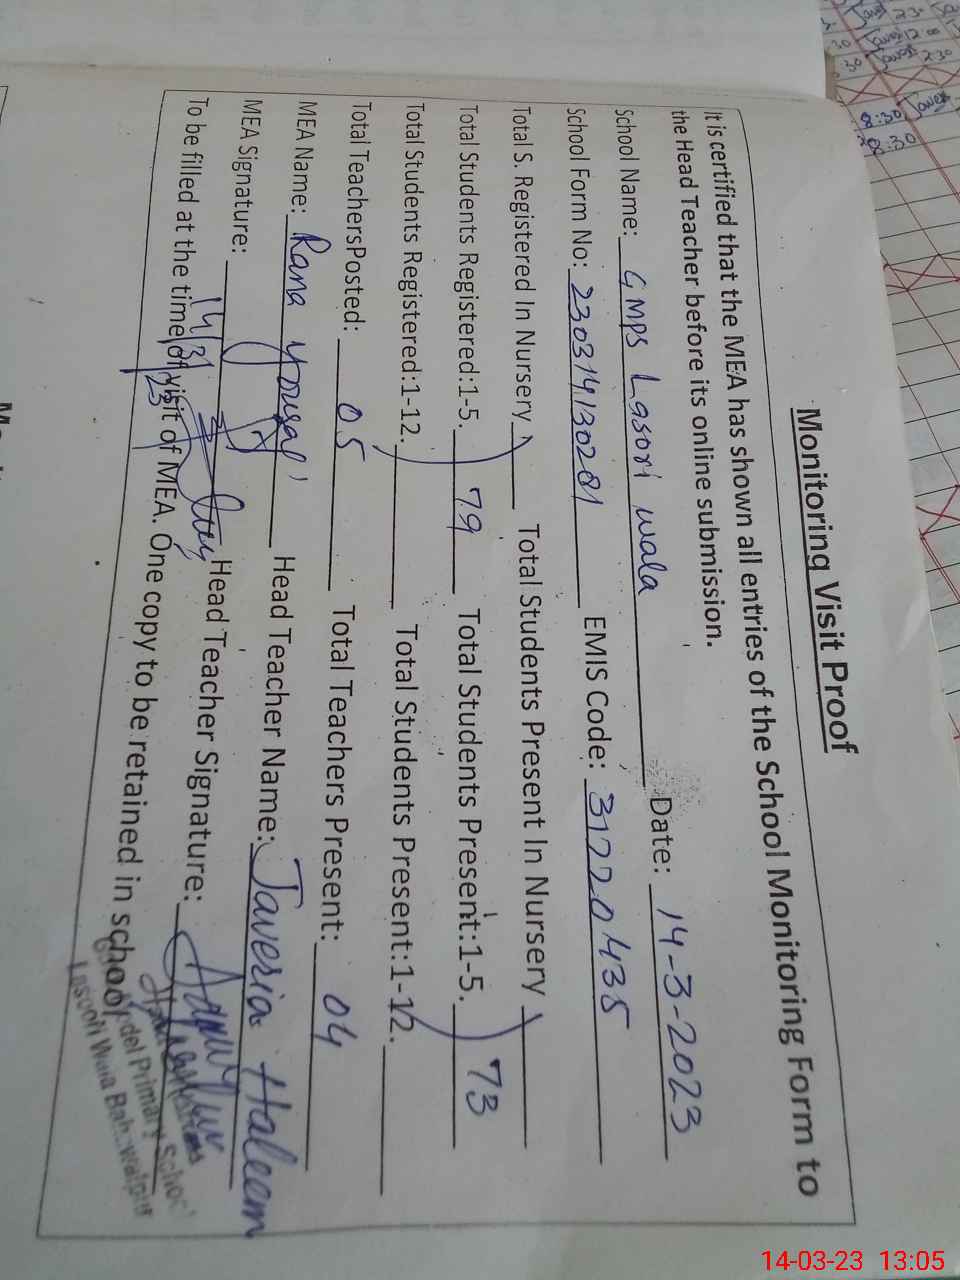 Monitoring Visit Proof
It is certified that the MEA has shown all entries of the School Monitoring Form to
the Head Teacher before its online submission.
School Name: GMPS Lasori wala Date: 14-3-2023
School Form No: EMIS Code: 31220435
Total S. Registered In Nursery Total Students Present In Nursery
Total Students Registered:1-5. 79 Total Students Present:1-5. 73
Total Students Registered:1-12. Total Students Present:1-12.
Total TeachersPosted: 05 Total Teachers Present: 04
MEA Name: Rana Yousaf Head Teacher Name: Javeria Haleem
MEA Signature: 14/3/23 Head Teacher Signature:
To be filled at the time of visit of MEA. One copy to be retained in school
del Primary School
Lasoori Wala Bahawalpur
14-03-23 13:05